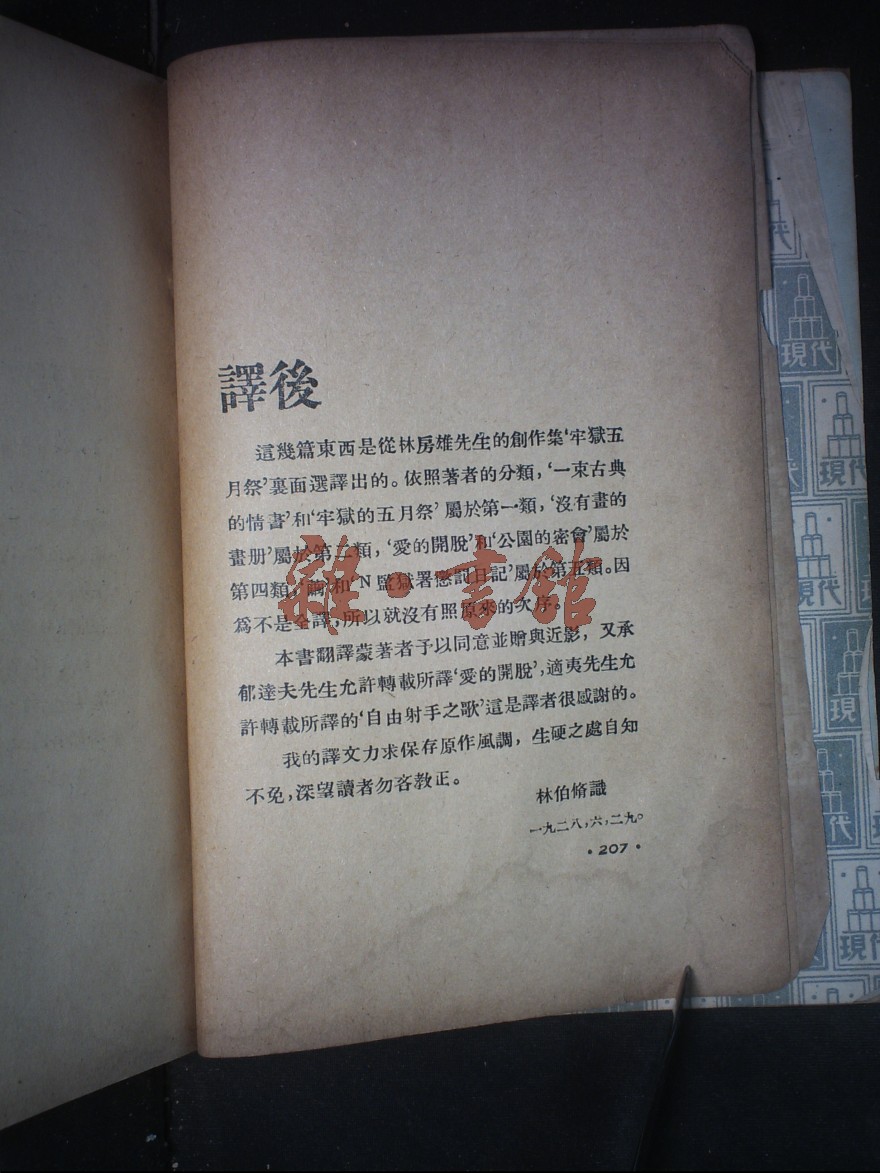 譯後
這幾篇東西是從林房雄先生的創作集‘牢獄五
月祭’裏面選譯出的。依照著者的分類，‘一束古典
的情書’和‘牢獄的五月祭’屬於第一類，‘沒有畫的
畫册’屬於第二類，‘愛的開脫’和‘公園的密會’屬於
第四類，‘繭’和‘N監獄署懲罰日記’屬於第五類。因
爲不是全譯，所以就沒有照原來的次序。
本書翻譯蒙著者予以同意並贈與近影，又承
郁達夫先生允許轉載所譯‘愛的開脫’，適夷先生允
許轉載所譯的‘自由射手之歌’這是譯者很感謝的。
我的譯文力求保存原作風調，生硬之處自知
不免，深望讀者勿吝教正。
林伯脩識
一九二八，六，二九。
•207•
雜·書館
現代
現代
現代
現代
現代
現代